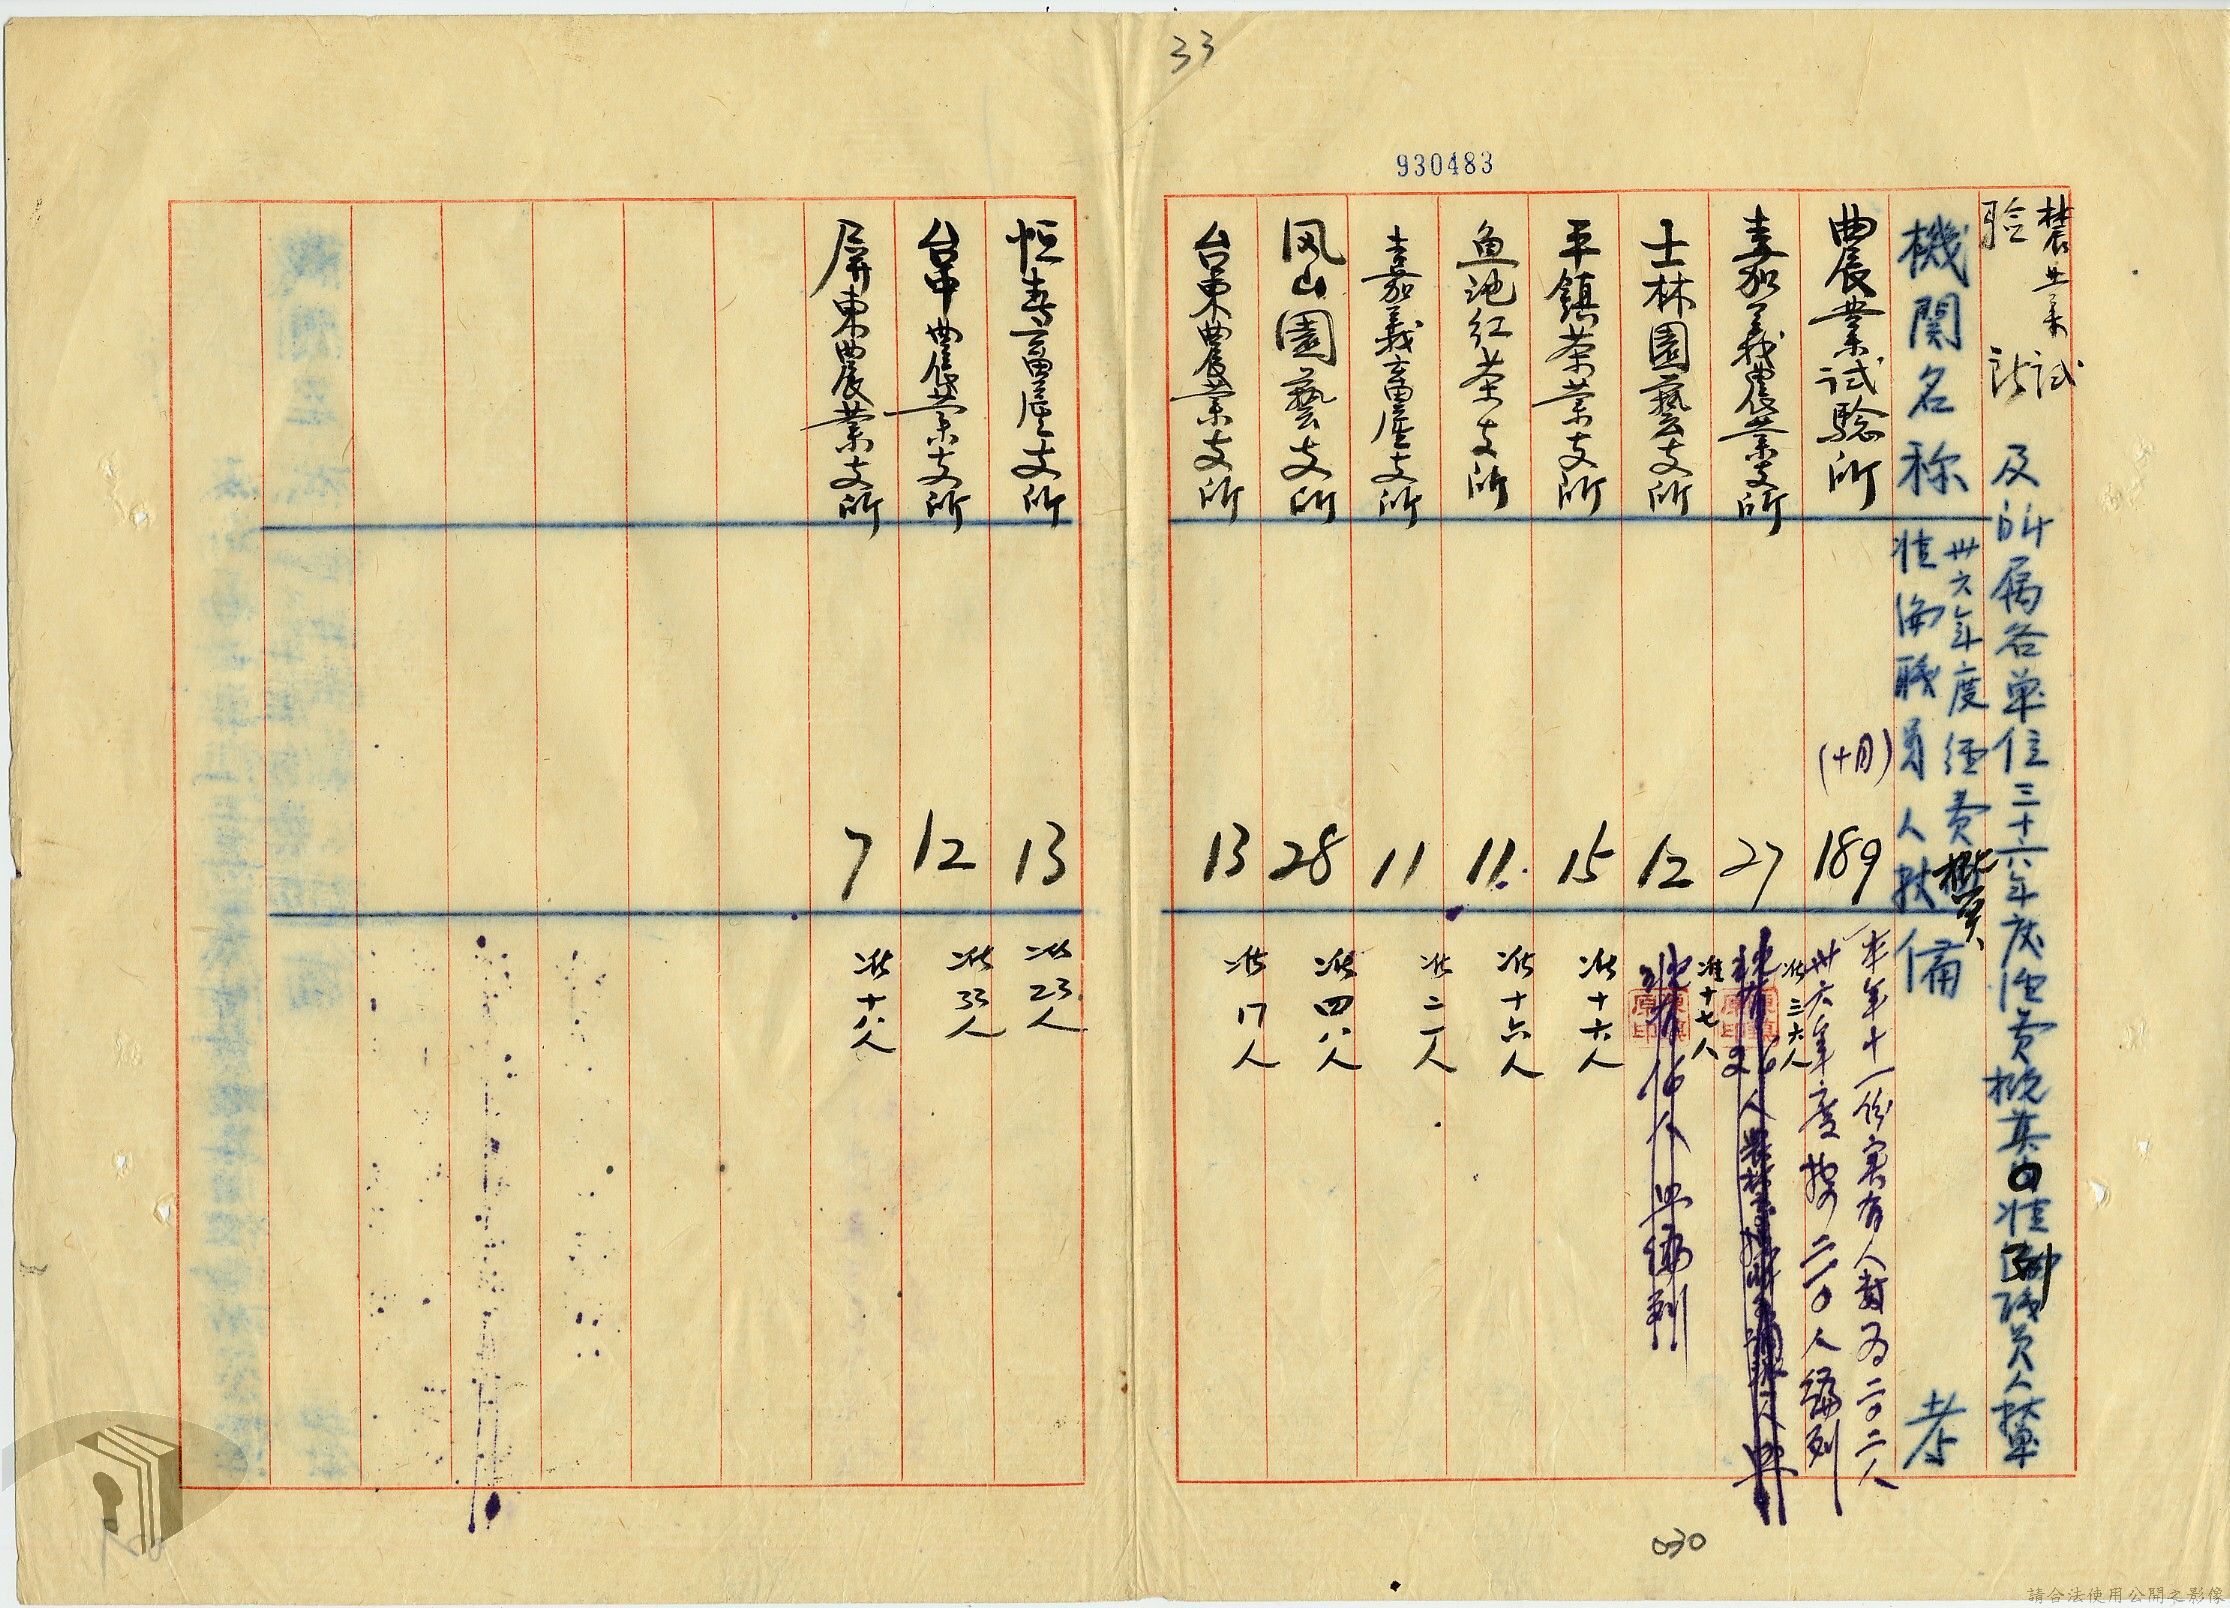 33
930483
農業試
驗所
及所屬各單位三十六年度經費概算內准列職員人數單
機関名称
卅六年度經費概算
准編職員人数
備考
農業試驗所
(十月)
189
本年十一份实有人数为二〇二人
卅六年度按二一〇人編列
嘉义農業支所
27
准三六人
士林園藝支所
12
准十七人
現有16人照編列
平鎮茶業支所
15
准十六人
魚池红茶支所
11
准十六人
嘉義畜産支所
11
准二一人
凤山園藝支所
28
准四八人
台東農業支所
13
准17人
恒春畜産支所
13
准23人
台中農業支所
12
准33人
屏東農業支所
7
准十八人
030
請合法使用公開之影像